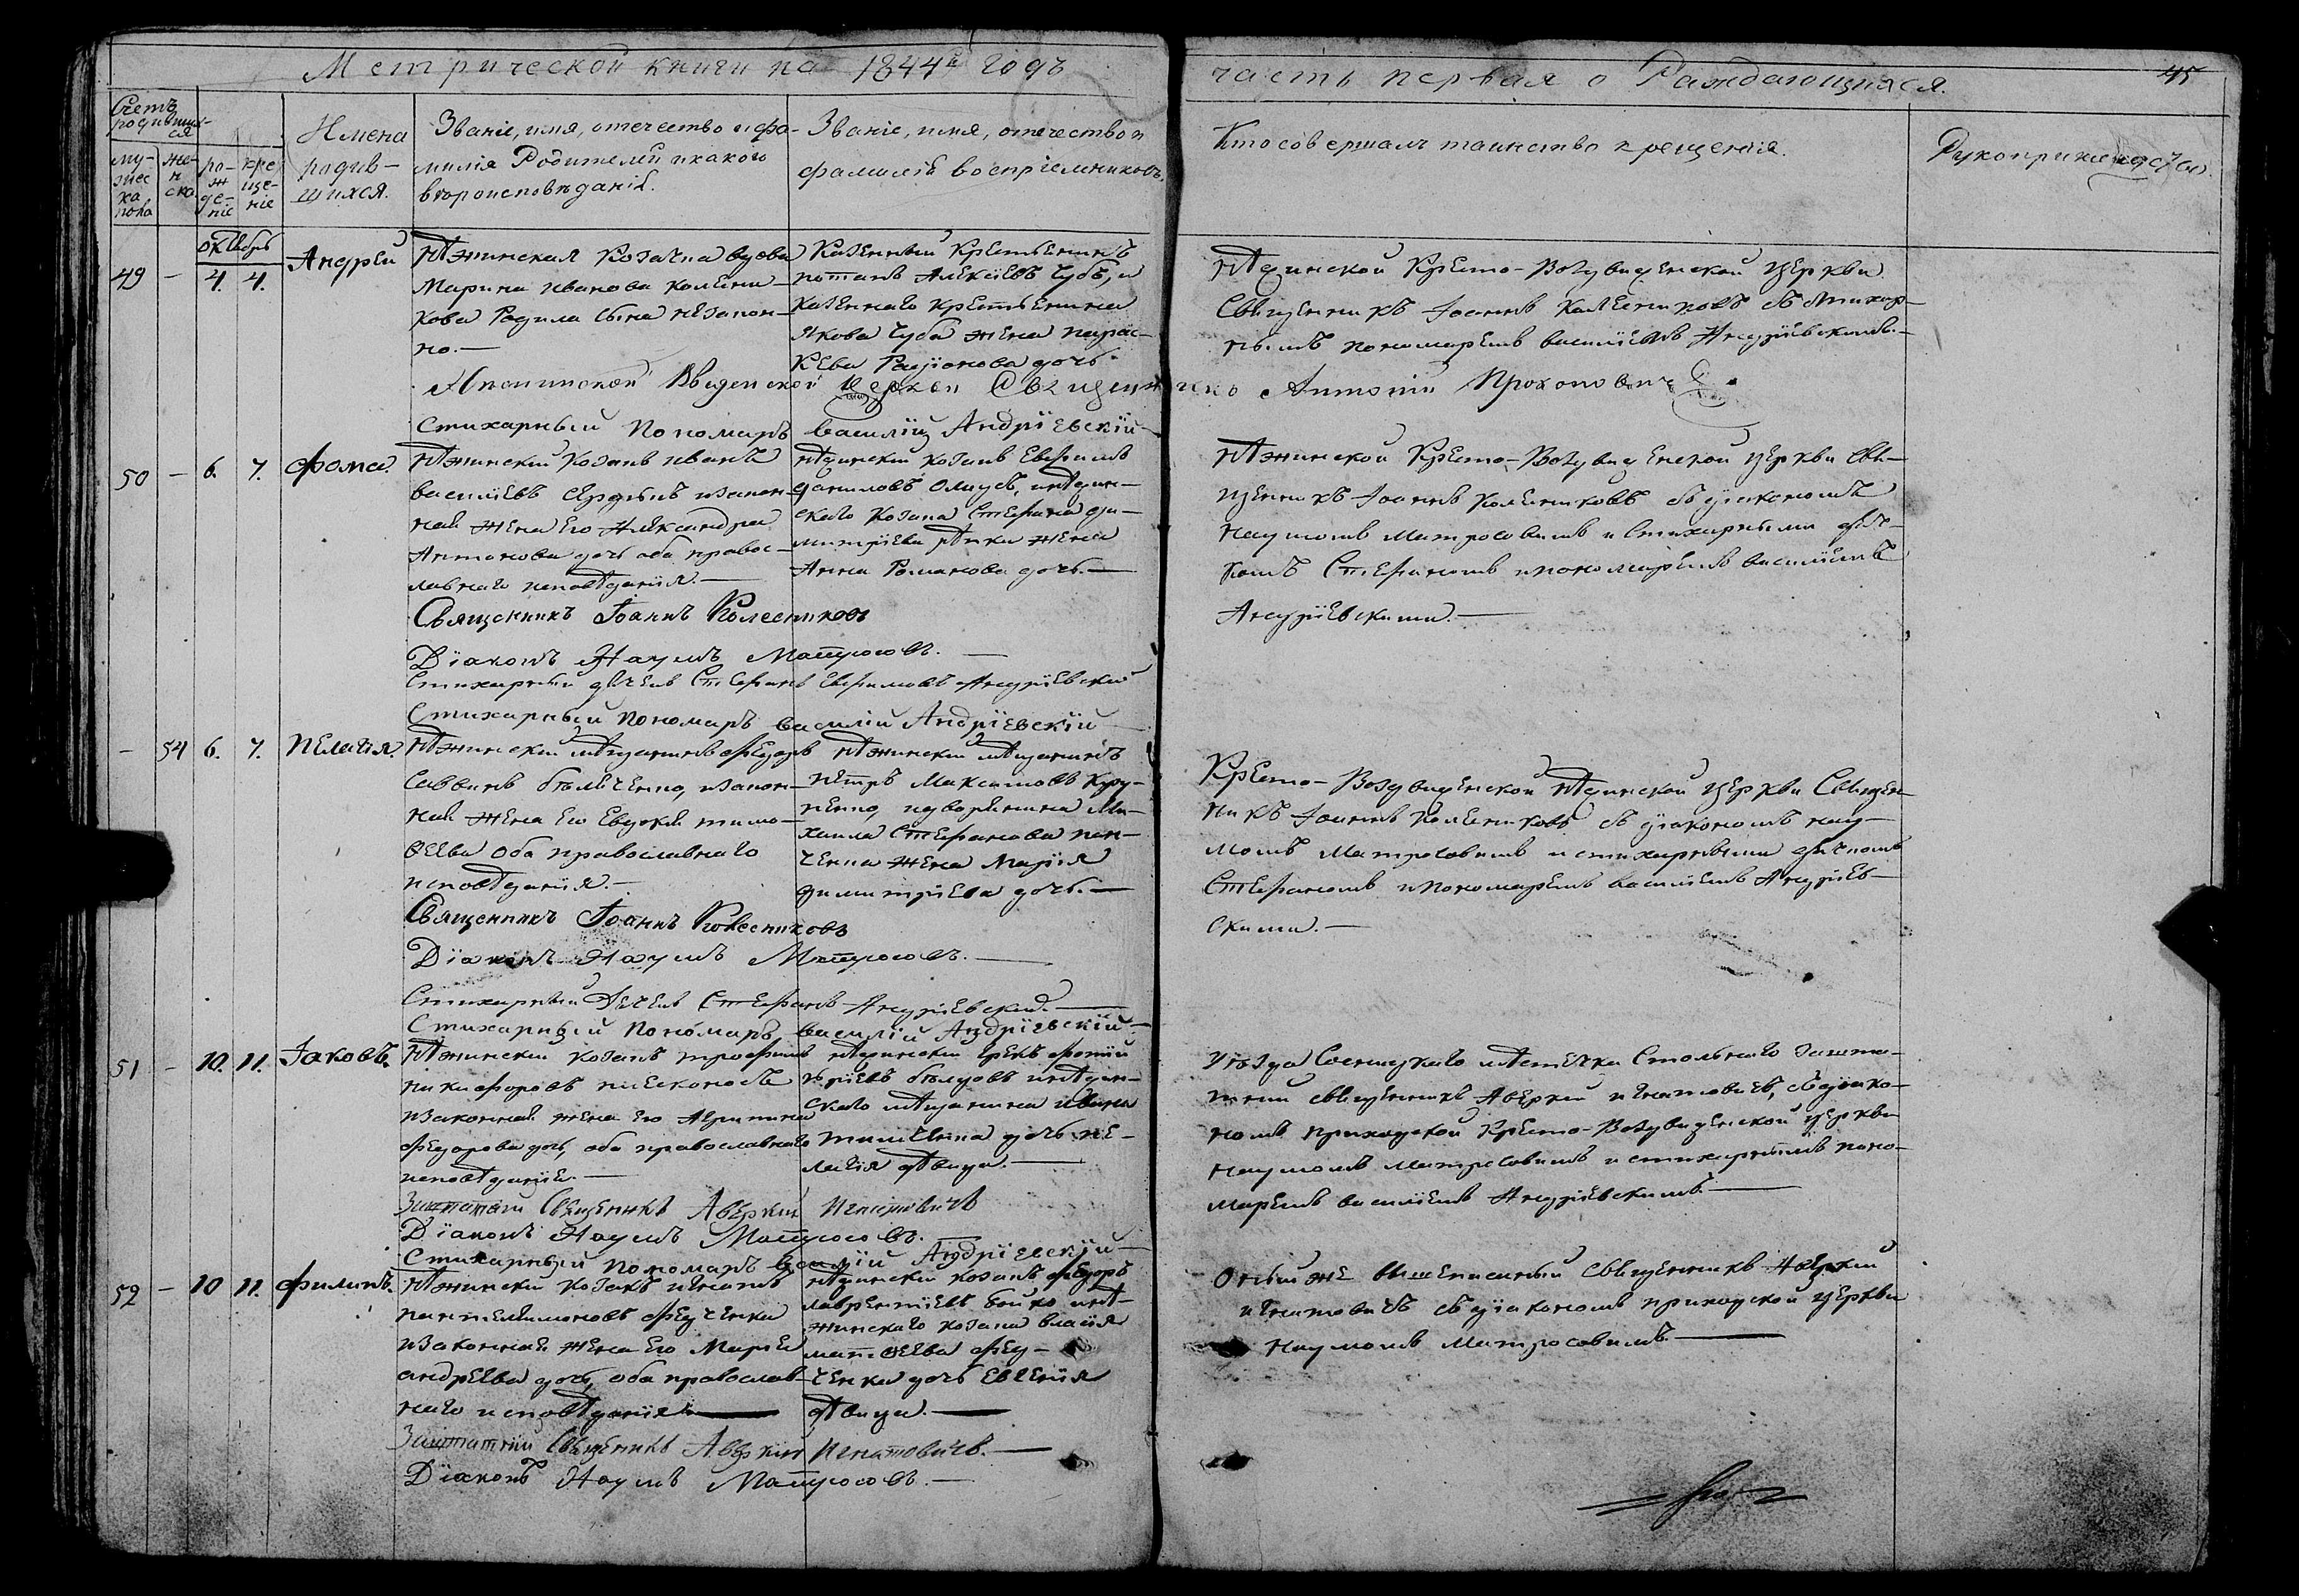 Метрической книги на 1844й годъ
часть первая о Раждающихся.
45
Счетъ
родивших-
ся
му-
жес
ка
пола
же-
н
ска
ро-
ж
де-
ніе
кре
ще-
ніе
Имена
родив-
шихся.
Званіе, имя, отечество и фа-
милія Родителей и какого
вѣроисповѣданія.
Званіе, имя, отечество и
фамилія воспріемниковъ.
Кто совершалъ таинство крещенія.
Рукоприкладство
октябрь
49 — 4. 4. Андрей
Нѣжинская козачка вдова
Марина Иванова колесни-
кова родила сына незакон-
но.—
Казенный крестьянинъ
потапъ Алексіевъ Чубъ, и
казеннаго крестьянина
Якова Чуба жена парас-
кева Радіонова дочь.
Нѣжинской Кресто-Воздвиженской церкви
Священникъ Іоаннъ Колесниковъ съ стихар-
нымъ пономаремъ василіемъ Андріевскимъ.—
Введенской церкви Священникъ Антоній Прокоповичъ
Стихарный Пономарь василій Андріевскій
50 — 6. 7. Фома.
Нѣжинскій козакъ иванъ
василіевъ Сердюкъ и закон-
ная жена его Александра
Антонова дочь оба правос-
лавнаго исповѣданія.—
нѣжинскій козакъ Евфимъ
даниловъ, и нѣжин-
скаго козака Стефана ди-
митріева жена
Анна Романова дочь.—
Нѣжинской Кресто-Воздвиженской церкви свя-
щенникъ Іоаннъ Колесниковъ съ діакономъ
наумомъ Матросовымъ и стихарными дьяч-
комъ Стефаномъ и пономаремъ василіемъ
Андріевскими.—
Священникъ Іоаннъ Колесниковъ
Діаконъ Наумъ Матросовъ.—
Стихарный дьячекъ Стефанъ Евфимовъ Андріевскій
Стихарный Пономарь василій Андріевскій
— 54 6. 7. Пелагія.
Нѣжинскій мѣщанинъ Федоръ
Саввинъ, и закон-
ная жена его Евдокія тимо-
ѳеева оба православнаго
исповѣданія.—
Нѣжинскій мѣщанинъ
петръ Максимовъ
и дворянина Ми-
хаила Стефанова пан-
ченка жена Марія
димитріева дочь.—
Кресто-Воздвиженской нѣжинской церкви Священ-
никъ Іоаннъ Колесниковъ съ діакономъ нау-
момъ Матросовымъ и стихарными дьячкомъ
Стефаномъ и пономаремъ василіемъ Андріев-
скими.—
Священникъ Іоаннъ Колесниковъ
Діаконъ Наумъ Матросовъ.—
Стихарный Дьячекъ Стефанъ Андріевскій.—
Стихарный Пономарь василій Андріевскій—
51 — 10. 11. Іаковъ.
Нѣжинскій козакъ трофимъ
никифоровъ
и законная жена его
Федорова дочь, оба православнаго
исповѣданія.—
нѣжинскій грекъ фотій
и нѣжин-
скаго мѣщанина ивана
дочь пе-
лагія дѣвица.—
уѣзда Сосницкаго мѣстечка Стольнаго зашта-
тный священникъ Аверкій игнатовичъ, съ діако-
номъ приходской Кресто-Воздвиженской церкви
наумомъ Матросовымъ и стихарнымъ поно-
маремъ василіемъ Андріевскимъ.—
Заштатній Священикъ Аверкій Игнатовичъ
Діаконъ Наумъ Матросовъ.
Стихарный Пономарь василій Андріевскій—
52 — 10 11. Филипъ.
Нѣжинскій козакъ игнатъ
пантелеимоновъ Фесченко
и законная жена его Марія
андреева дочь, оба православ-
наго исповѣданія.—
нѣжинскій козакъ Федоръ
лаврентіевъ бойко, и нѣ-
жинскаго козака власія
матѳеева Фес-
ченка дочь Евгенія
дѣвица.—
Оный же вышеписаный священникъ Аверкій
игнатовичъ съ діакономъ приходской церкви
Наумомъ Матросовымъ.—
Заштатній Священикъ Аверкій Игнатовичъ.—
Діаконъ Наумъ Матросовъ.—